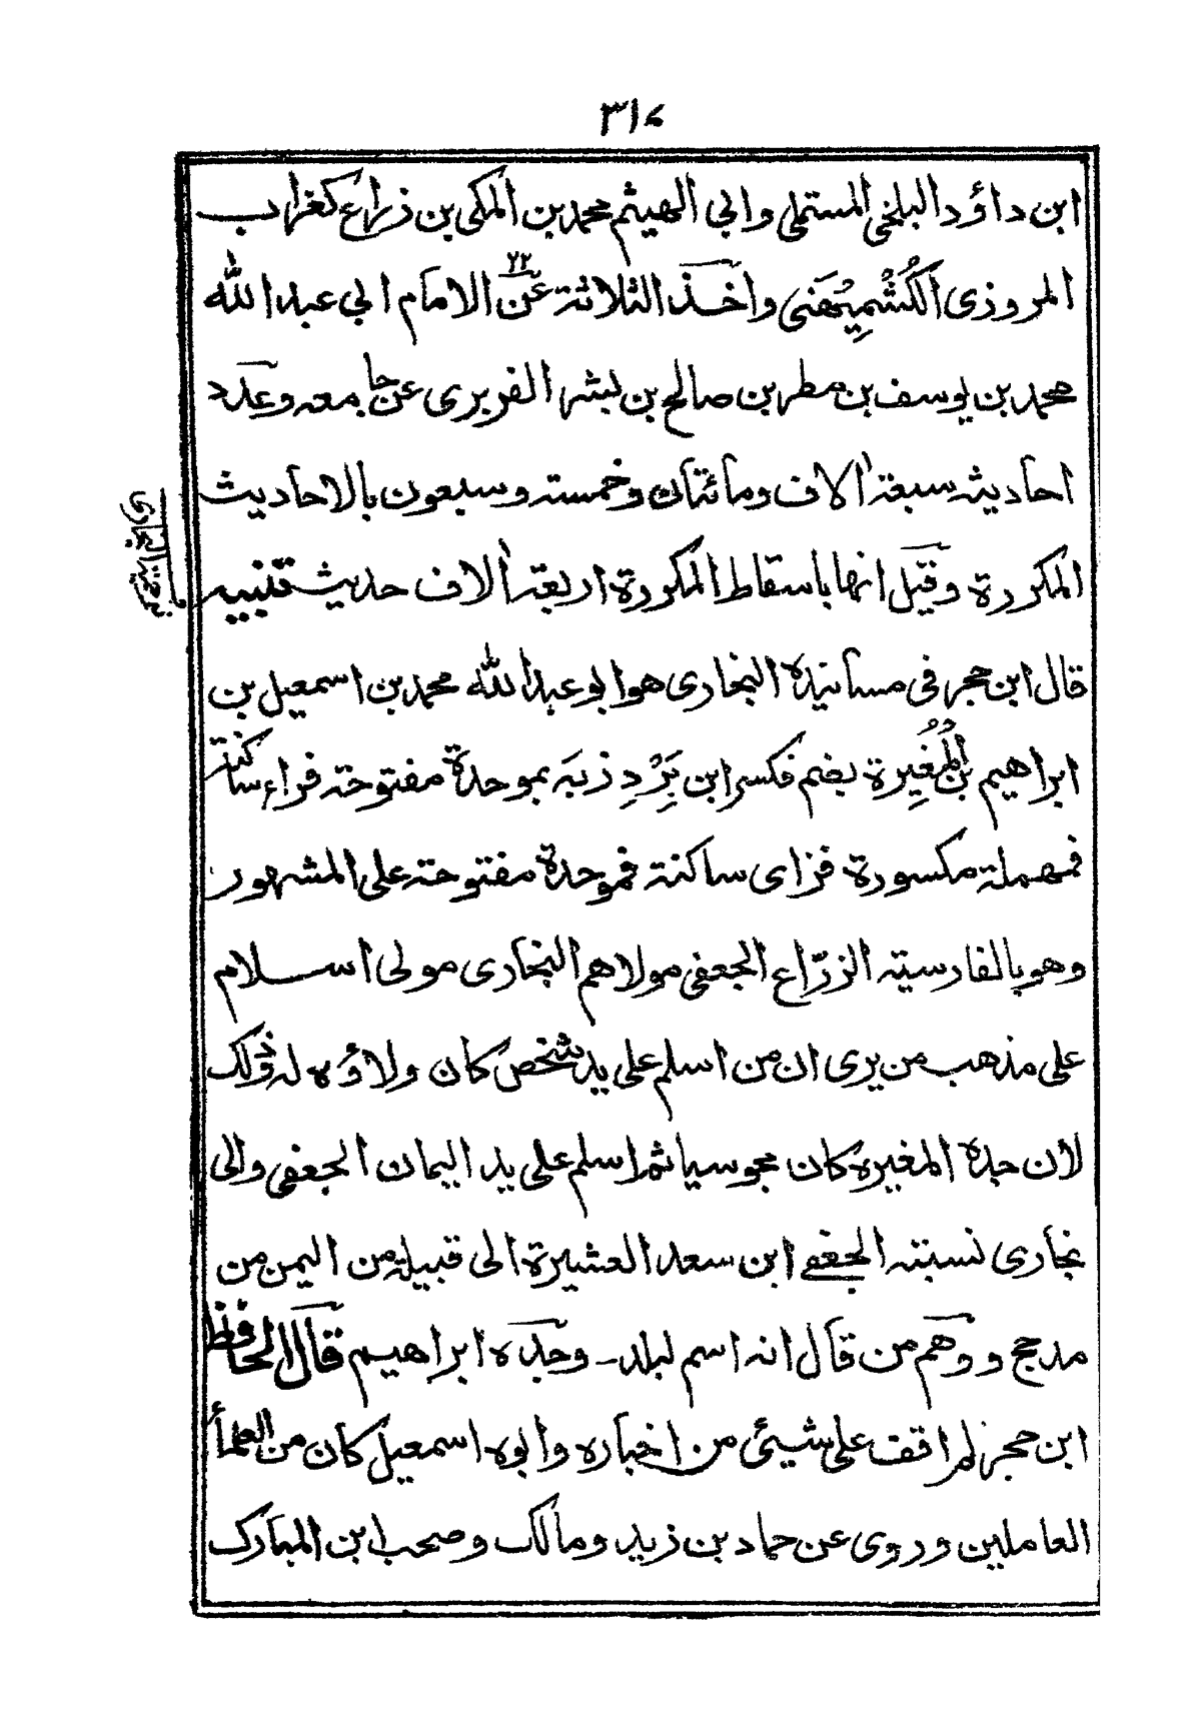 ٣١٧
ابن داؤد البلخي المستملي وابي الهيثم محمد بن المكي بن زراع كغراب
المروزى الكُشْمِيْهَنى واخذ الثلاثة عن ٢٢ الامام ابي عبد الله
محمد بن يوسف بن مطر بن صالح بن بشر الفربرى عن جامعه وعدد
احاديثه سبعة الاف ومائتان وخمسة وسبعون بالاحاديث
المكررة وقيل انها باسقاط المكررة اربعة الاف حديث تنبيه
قال ابن حجر فى مسانيده البخارى هو ابو عبد الله محمد بن اسمعيل بن
ابراهيم بن المُغِيرة بضم فكسر ابن بَرْدِزبَه بموحدة مفتوحة فراء ساكنة
فمهملة مكسورة فزاى ساكنة فموحدة مفتوحة على المشهور
وهو بالفارسية الزرّاع الجعفى مولاهم البخارى مولى اسلام
على مذهب من يرى ان من اسلم على يد شخص كان ولاؤه له وذلك
لان جده المغيرة كان مجوسيا ثم اسلم على يد اليمان الجعفى والى
بخارى نسبته الجعفى ابن سعد العشيرة الى قبيلة من اليمن من
مدحج ووهم من قال انه اسم لبلد ـ وجده ابراهيم قال الحافظ
ابن حجر لم اقف على شيئى من اخباره وابوه اسمعيل كان من العلمأ
العاملين وروى عن حماد بن زيد ومالك وصحب ابن المبارك